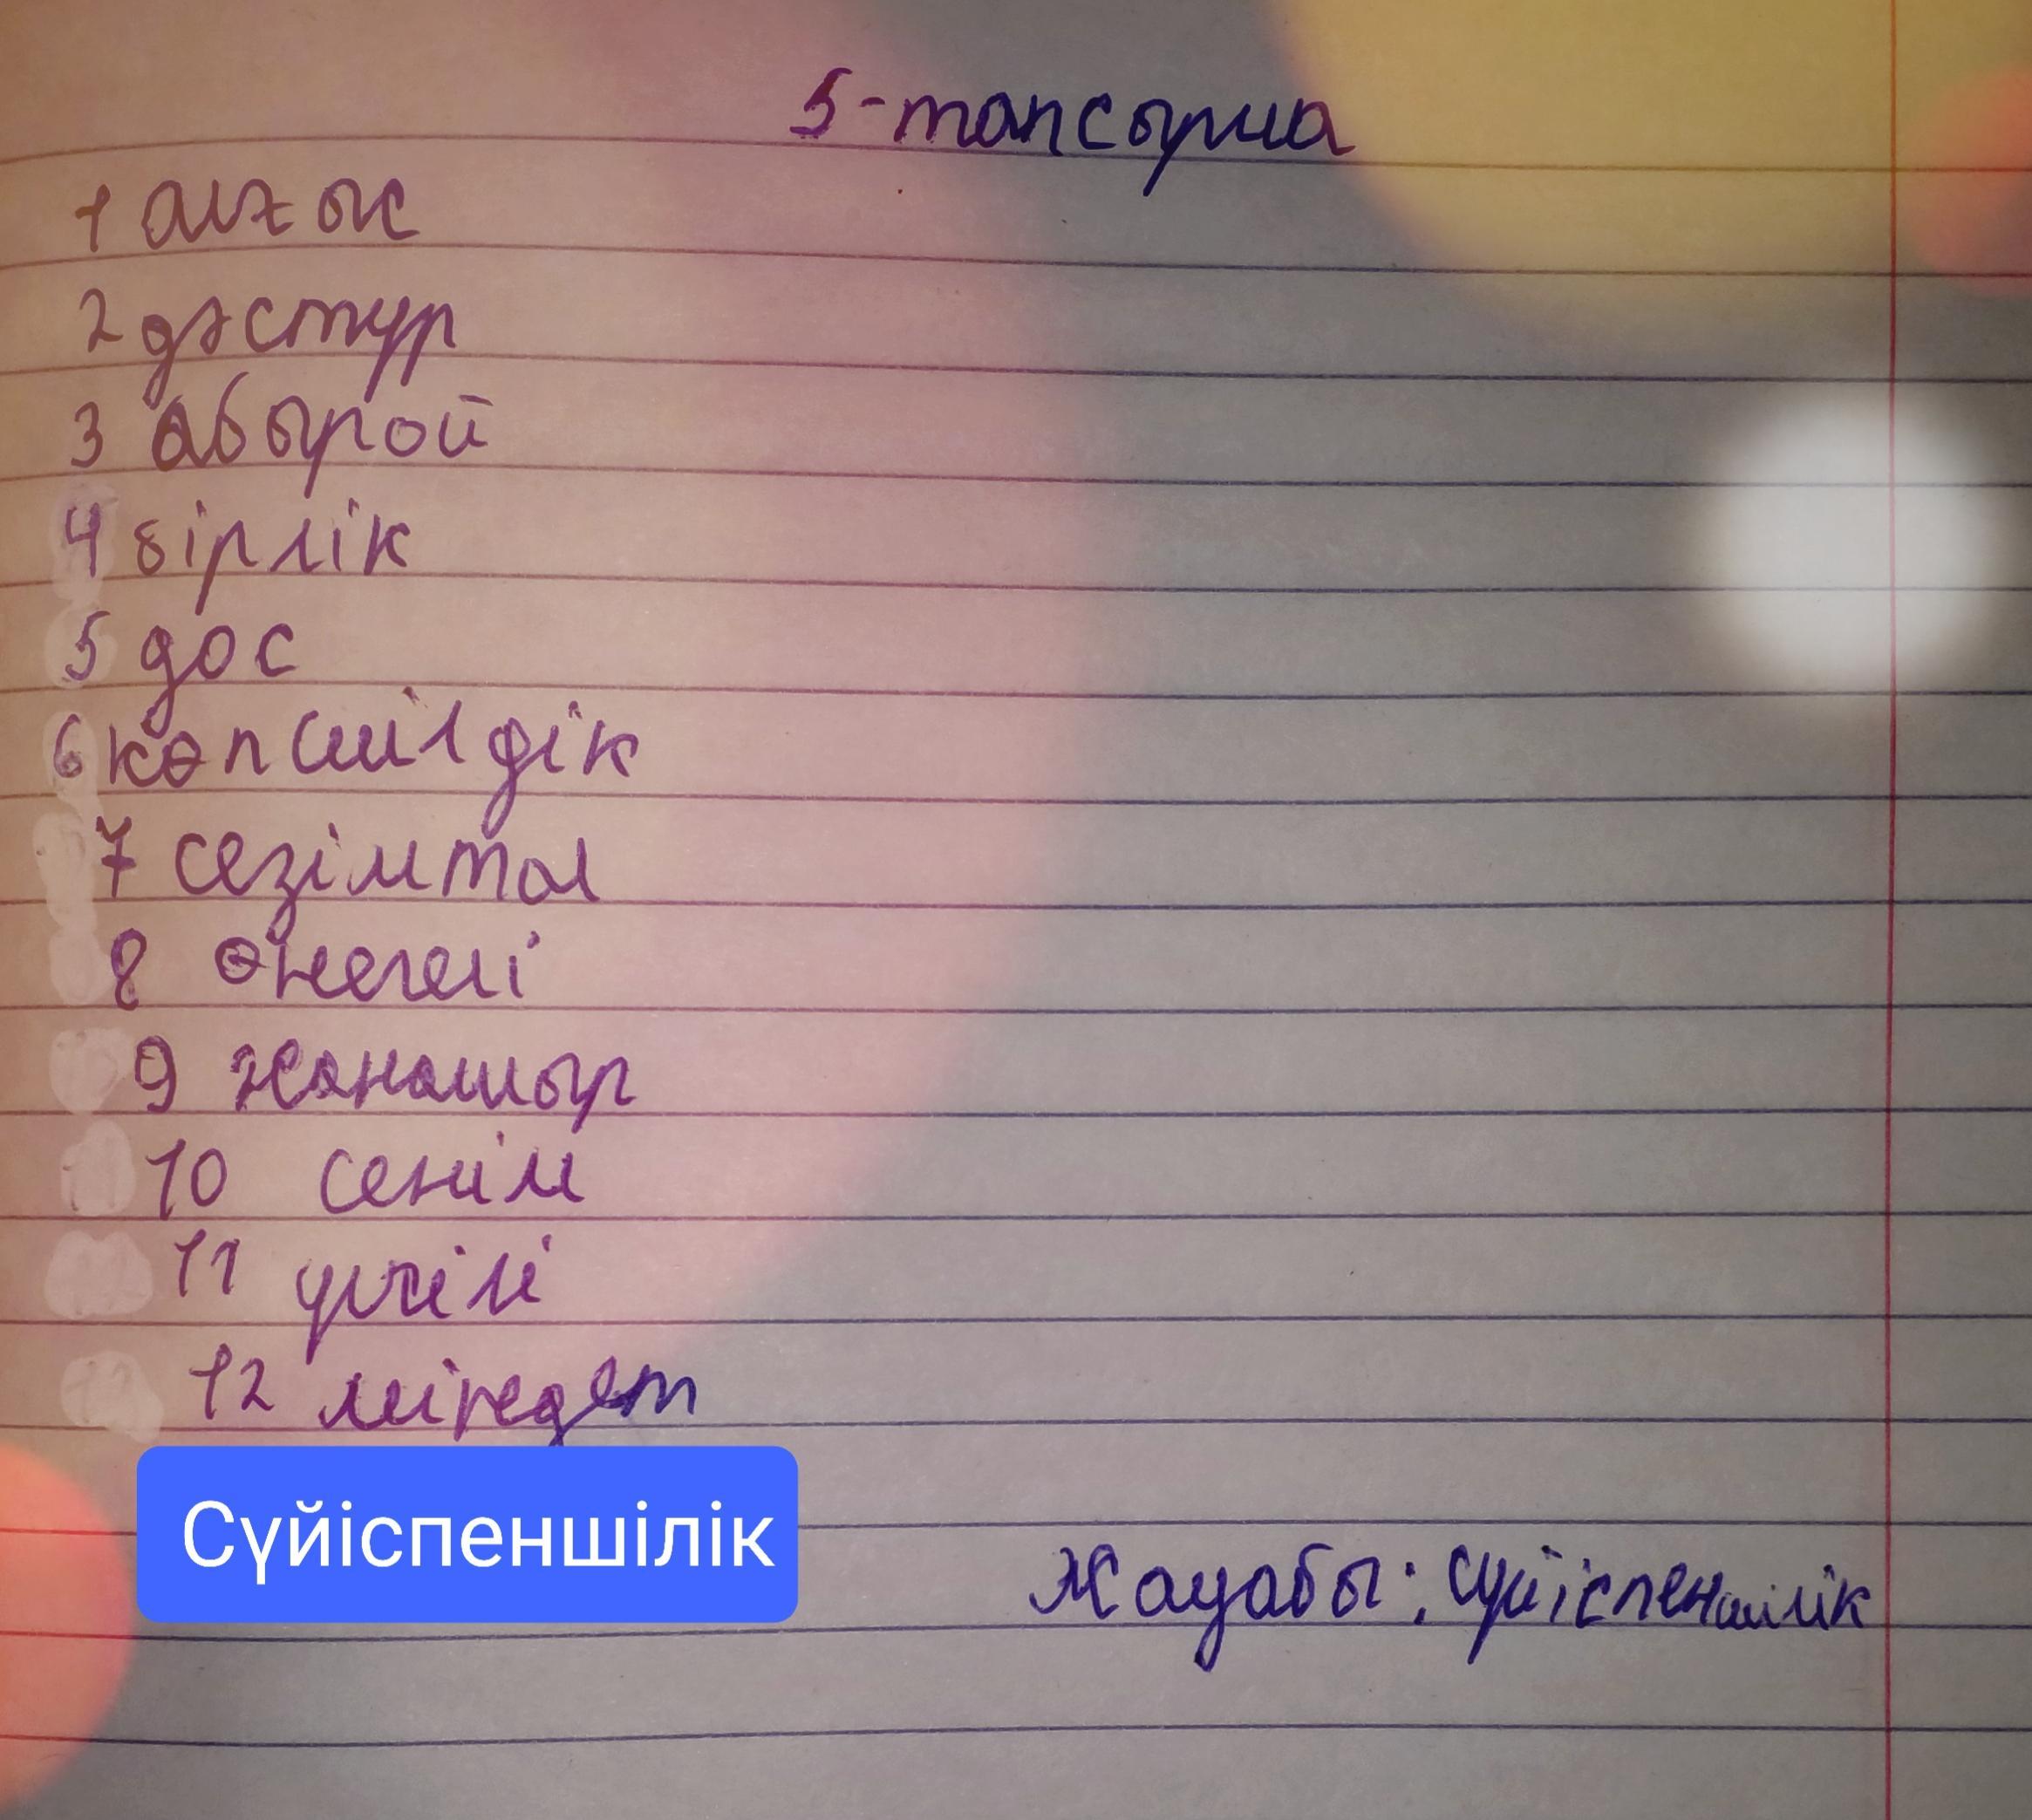 5-тапсырма
1 алғыс
2 дәстүр
3 абырой
4 бірлік
5 дос
6 көпшілдік
7 сезімтал
8 өнегелі
9 жанашыр
10 сенім
11 үлгілі
12 міндет
Сүйіспеншілік
Жауабы: сүйіспеншілік